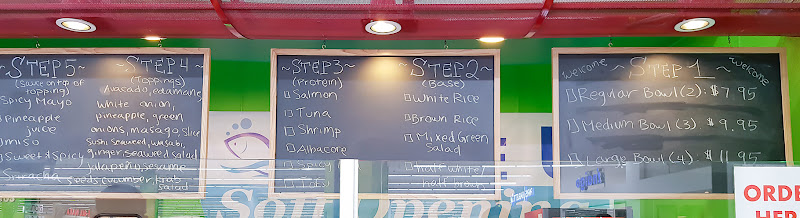 ~STEP 5~
(Sauce on top of
topping)
Spicy Mayo
Pineapple
juice
miso
Sweet & Spicy
Sriracha
~STEP 4~
(Toppings)
Avocado, edamame
white onion,
pineapple, green
onions, masago, slice
sushi seaweed, wasabi,
ginger, seaweed salad
jalapeno, sesame
seeds, cucumber, crab
salad
~STEP 3~
(Protein)
Salmon
Tuna
Shrimp
Albacore
Spicy
~STEP 2~
(Base)
White Rice
Brown Rice
Mixed Green
Salad
half white
half brown
welcome ~STEP 1~ welcome
Regular Bowl (2): $7.95
Medium Bowl (3) $9.95
Large Bowl (4): $11.95
Soft Opening
ORDE
HER